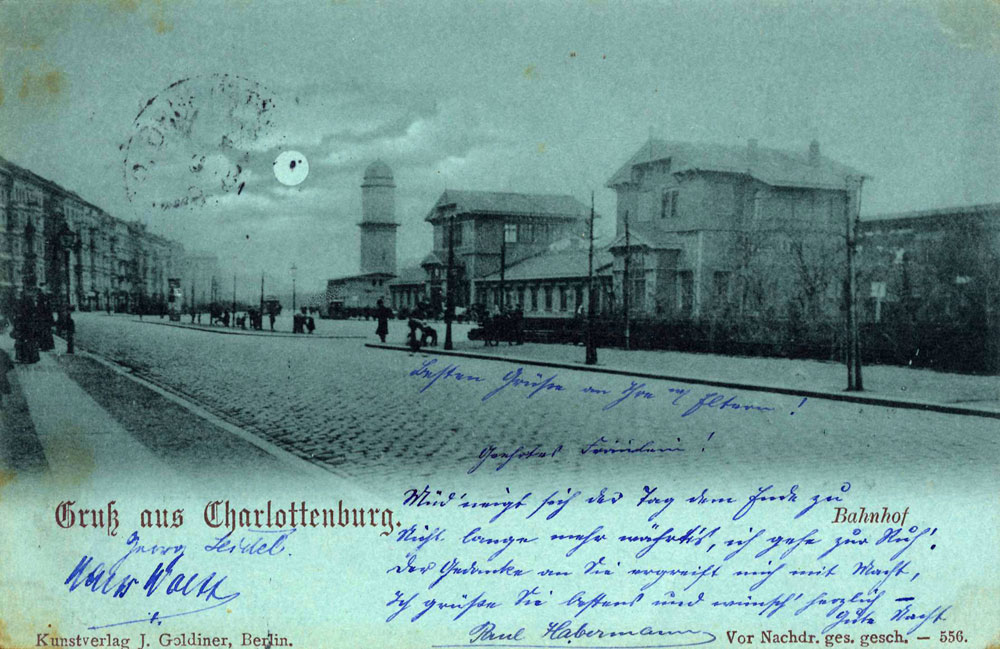 Besten Grüße an Ihre Eltern!
Geehrtes Fräulein!
Müd' neigt sich der Tag dem Ende zu
Nicht lange mehr währt's, ich gehe zur Ruh'.
Der Gedanke an Sie ergreift mich mit Macht,
Ich grüße Sie bestens und wünsch' herzlich –
Gute Nacht
Paul Habermann
Gruß aus Charlottenburg.
Bahnhof
Georg Seidel.
Kunstverlag J. Goldiner, Berlin.
Vor Nachdr. ges. gesch. – 556.